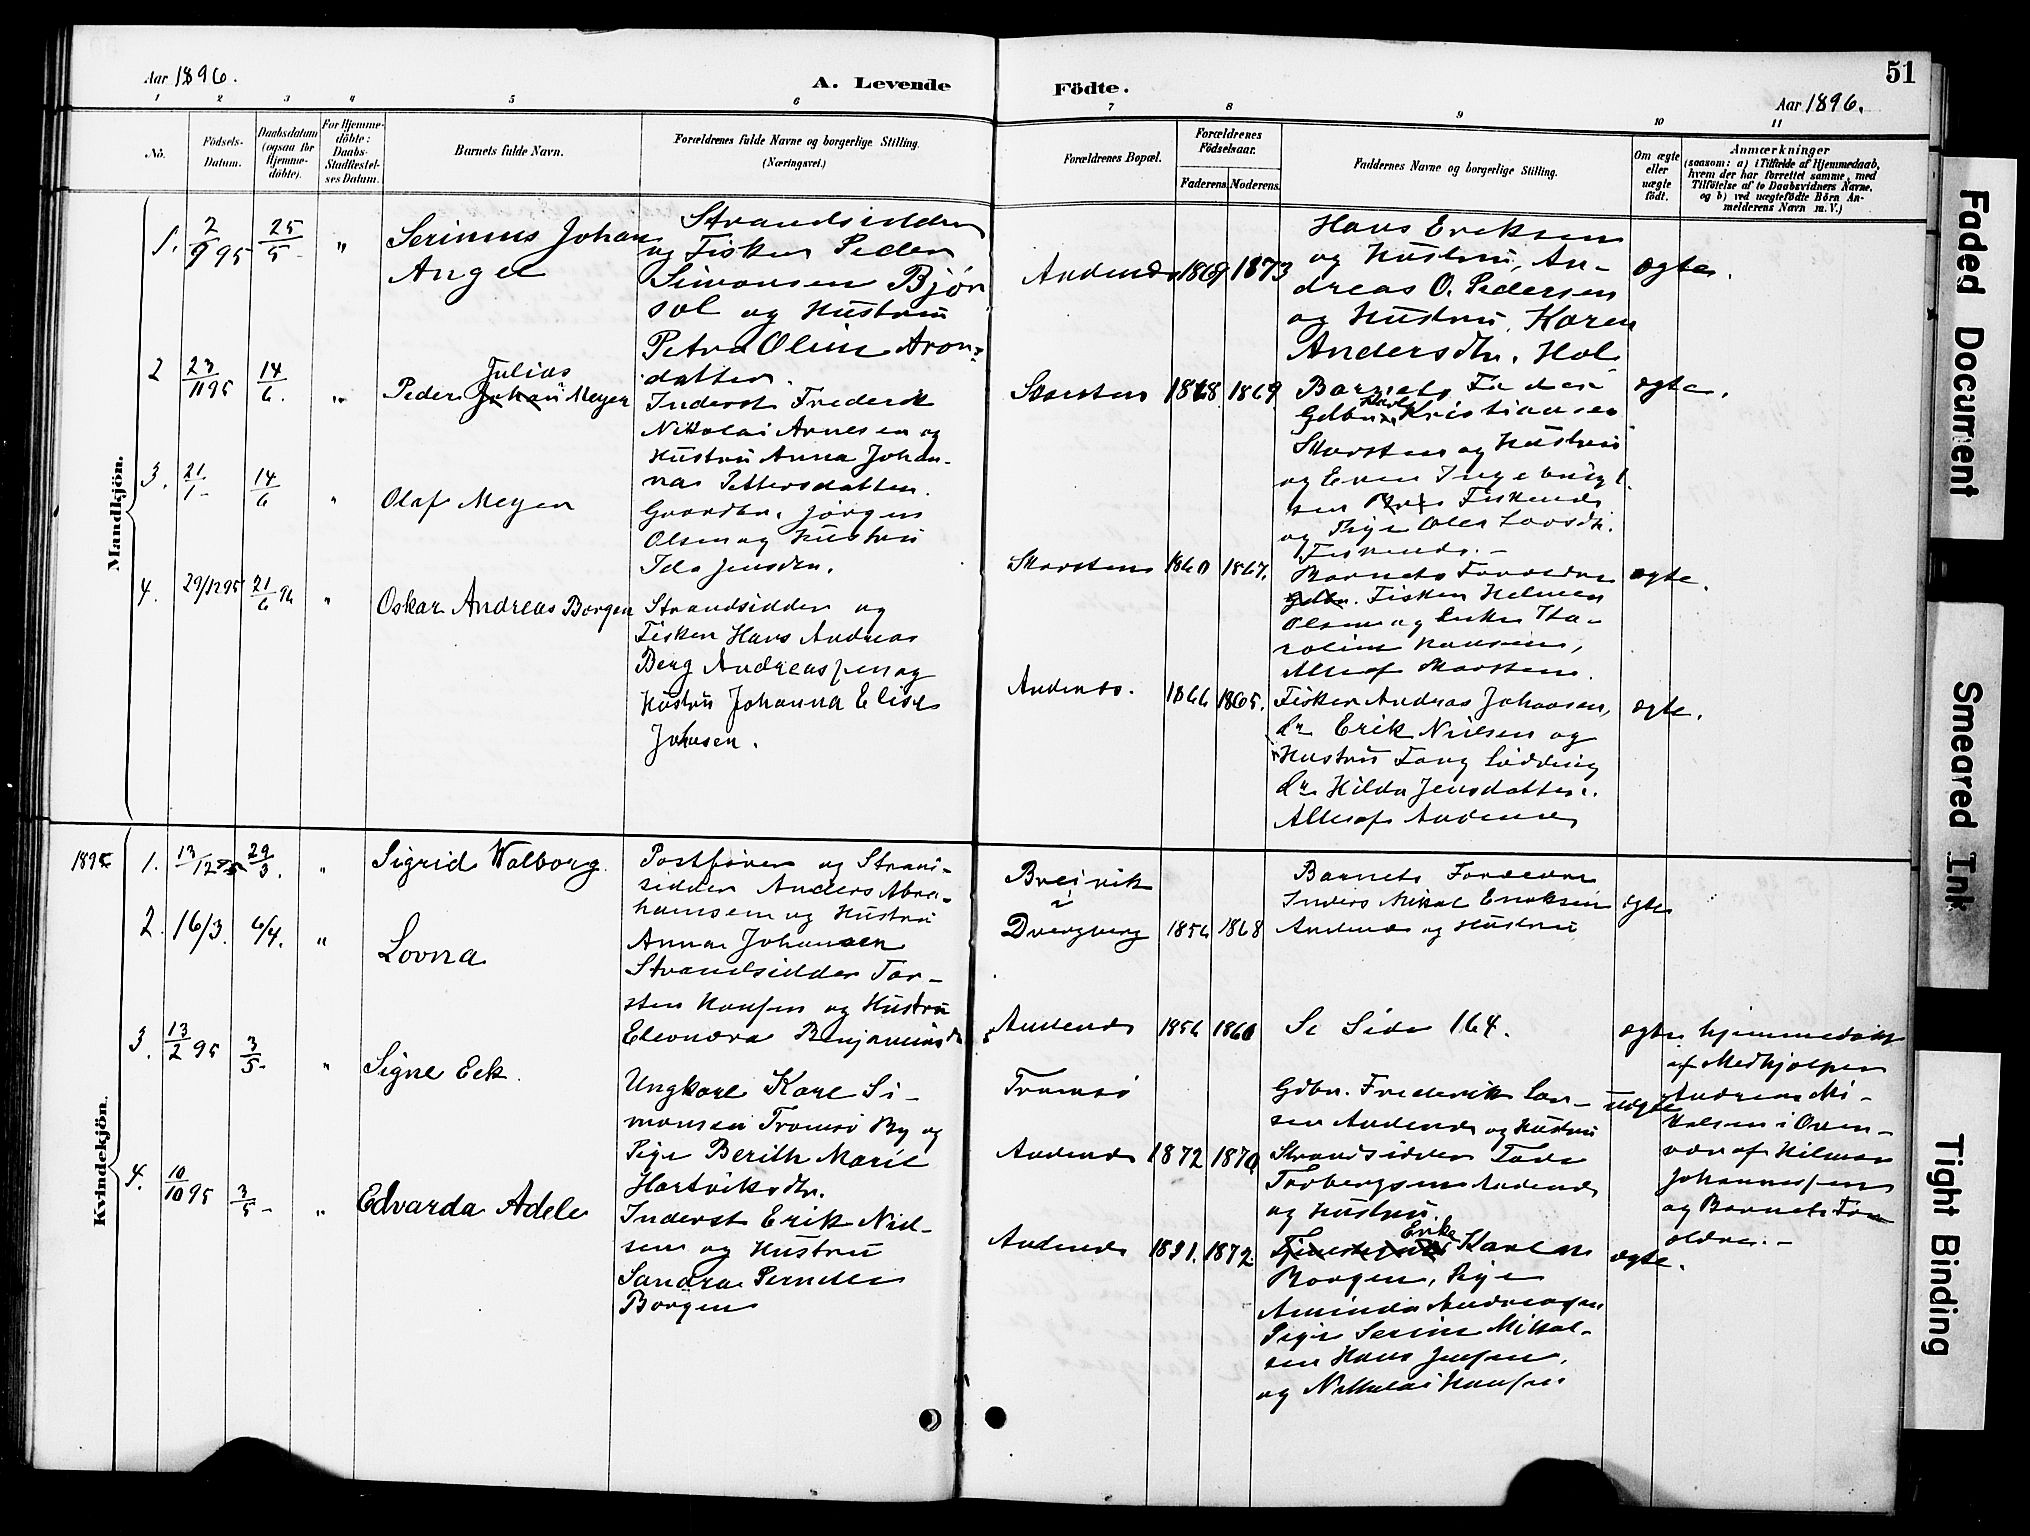 51
Aar 1896.
A. Levende
Födte.
Aar 1896.
1 2 3 4 5 6 7 8 9 10 11
No.
Födsels-
Datum.
Daabsdatum
(ogsaa for
Hjemme-
döbte).
For Hjemme-
döbte:
Daabs-
Stadfæstel-
ses Datum.
Barnets fulde Navn.
Forældrenes fulde Navne og borgerlige Stilling.
(Næringsvei.)
Forældrenes Bopæl.
Forældrenes
Födselsaar.
Faderens. Moderens.
Faddernes Navne og borgerlige Stilling.
Om ægte
eller
uægte
födt.
Anmærkninger
(saasom: a) i Tilfælde af Hjemmedaab,
hvem der har forrettet samme, med
Tilföielse af to Daabsvidners Navne,
og b) ved uægtefödte Börn An-
melderens Navn m. V.)
Mandkjön.
1. 2/9 95 25/5 "
Serinius Johan
Angel
Strandsidder
og Fisker Peder
Simonsen Bjør
og Hustru
Petra Oline Aron-
datter.
Andenæs 1869 1873
Hans Eriksen
og Hustru, An-
dreas O. Pedersen
og Hustru, Karen
Andersdtr.
ægte.
2 23/11 95 14/6. "
Julius
Peder Johan Meyer
Inderst Frederik
Nikolai Arnesen og
Hustru Anna Johan-
na Pettersdatter.
Skarsten 1868 1869
Barnets Fader
Gdbr. Kristiansen
Skarsten og Hustru
og Even Ingebrigt-
sen Fiskenæs
og Pige
Fiskenæs.-
ægte.
3. 21/1- 14/6 "
Olaf Meyer
Gaardbr. Jørgen
Olsen og Hustru
Ida Jensdtr.
Skarsten 1860 1867.
Barnets Forældre
Gdbr. Fisker Helmer
Olsen og Enke
Hansen,
Alle af Skarsten.
ægte.
4. 29/12 95 21/6 96 "
Oskar Andreas Borgen
Strandsidder og
Fisker Hans Andreas
Berg Andreassen og
Hustru Johanna Elise
Johnsen.
Andenæs. 1866 1865.
Fisker Andreas Johansen,
do Erik Nielsen og
Hustru
do Hilda Jensdatter.
Alle af Andenæs
ægte.
Kvindekjön.
1895
1. 13/12 95 29/3. "
Sigrid Walborg.
Postfører og Strand-
sidder Anders Abra-
hamsen og Hustru
Anna Johansen
Breivik
i
Dverberg 1856 1868
Barnets Forældre
Inders Mikal Eriksen
Andenæs og Hustru
ægte
2. 16/3. 6/4. "
Lovna
Strandsidder Tor-
sten Hansen og Hustru
Eleonora Benjaminsdr
Andenæs 1856 1860
Se Side 164.
ægte
hjemmedøbt
af Medhjælper
Andreas Mi-
kalsen i Over-
vær af Hilmar
Johannessen
og Barnets For-
ældre.-
3. 13/2 95 3/5- "
Signe Eck.
Ungkarl Karl Si-
monsen Tromsø By og
Pige Berith Marie
Hartviksdtr.
Tromsø
Andenæs 1872 1870
Gdbr. Frederik Lar-
sen Andenæs og Hustru
Strandsidder Tore
Torbergsen Andenæs
og Hustru.
uægte
4. 10/10 95 3/5- "
Edvarda Adele
Inderst Erik Niel-
sen og Hustru
Sandra Pernelle
Borgen
Andenæs 1871. 1872.
Enke
Karen
Borgen, Pige
Aminda Andreassen
Pige Serine Mikal-
sen Hans Jensen,
og Nikolai Hansen
ægte.
Faded Document
Smeared Ink
Tight Binding